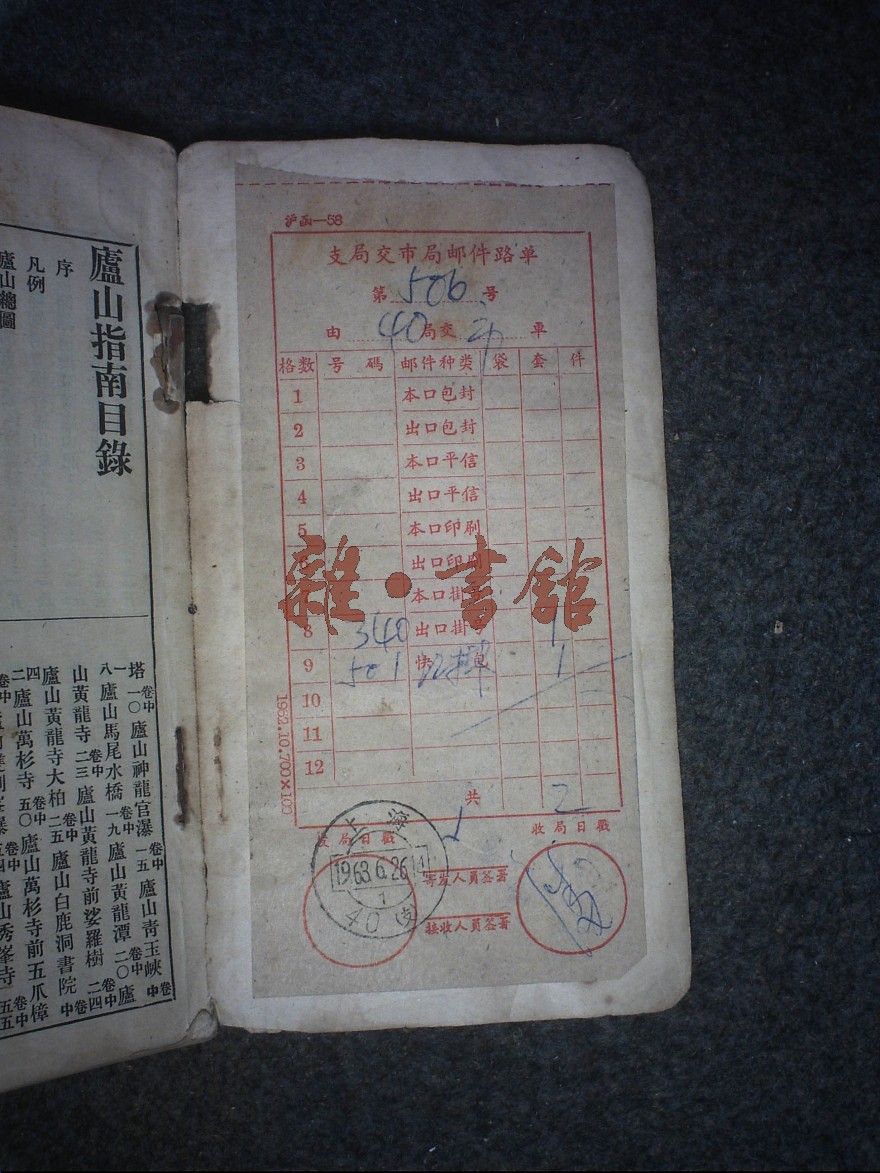 廬山指南目錄
序
凡例
廬山總圖
塔 卷中 一〇 廬山神龍官瀑 卷中 一五 廬山青玉峽 卷中
一八 廬山馬尾水橋 卷中 一九 廬山黃龍潭 卷中 二〇 廬
山黃龍寺 卷中 二三 廬山黃龍寺前娑羅樹 卷中 二四
廬山黃龍寺大柏 卷中 二五 廬山白鹿洞書院 卷中
四二 廬山萬杉寺 卷中 五〇 廬山萬杉寺前五爪樟 卷中
沪函—58
支局交市局邮件路单
第 506 号
由 40 局交 市 車
格数 号 碼 邮件种类 袋 套 件
1 本口包封
2 出口包封
3 本口平信
4 出口平信
5 本口印刷
6 出口印刷
7 本口掛号
8 340 出口掛号 1
9 501 快 包 1
10
11
12
共 2
1962.10.700×100
发局日戳 收局日戳
寄发人员签署
接收人员签署
上海
1963.6.26.14
1
40 支
雜·書館